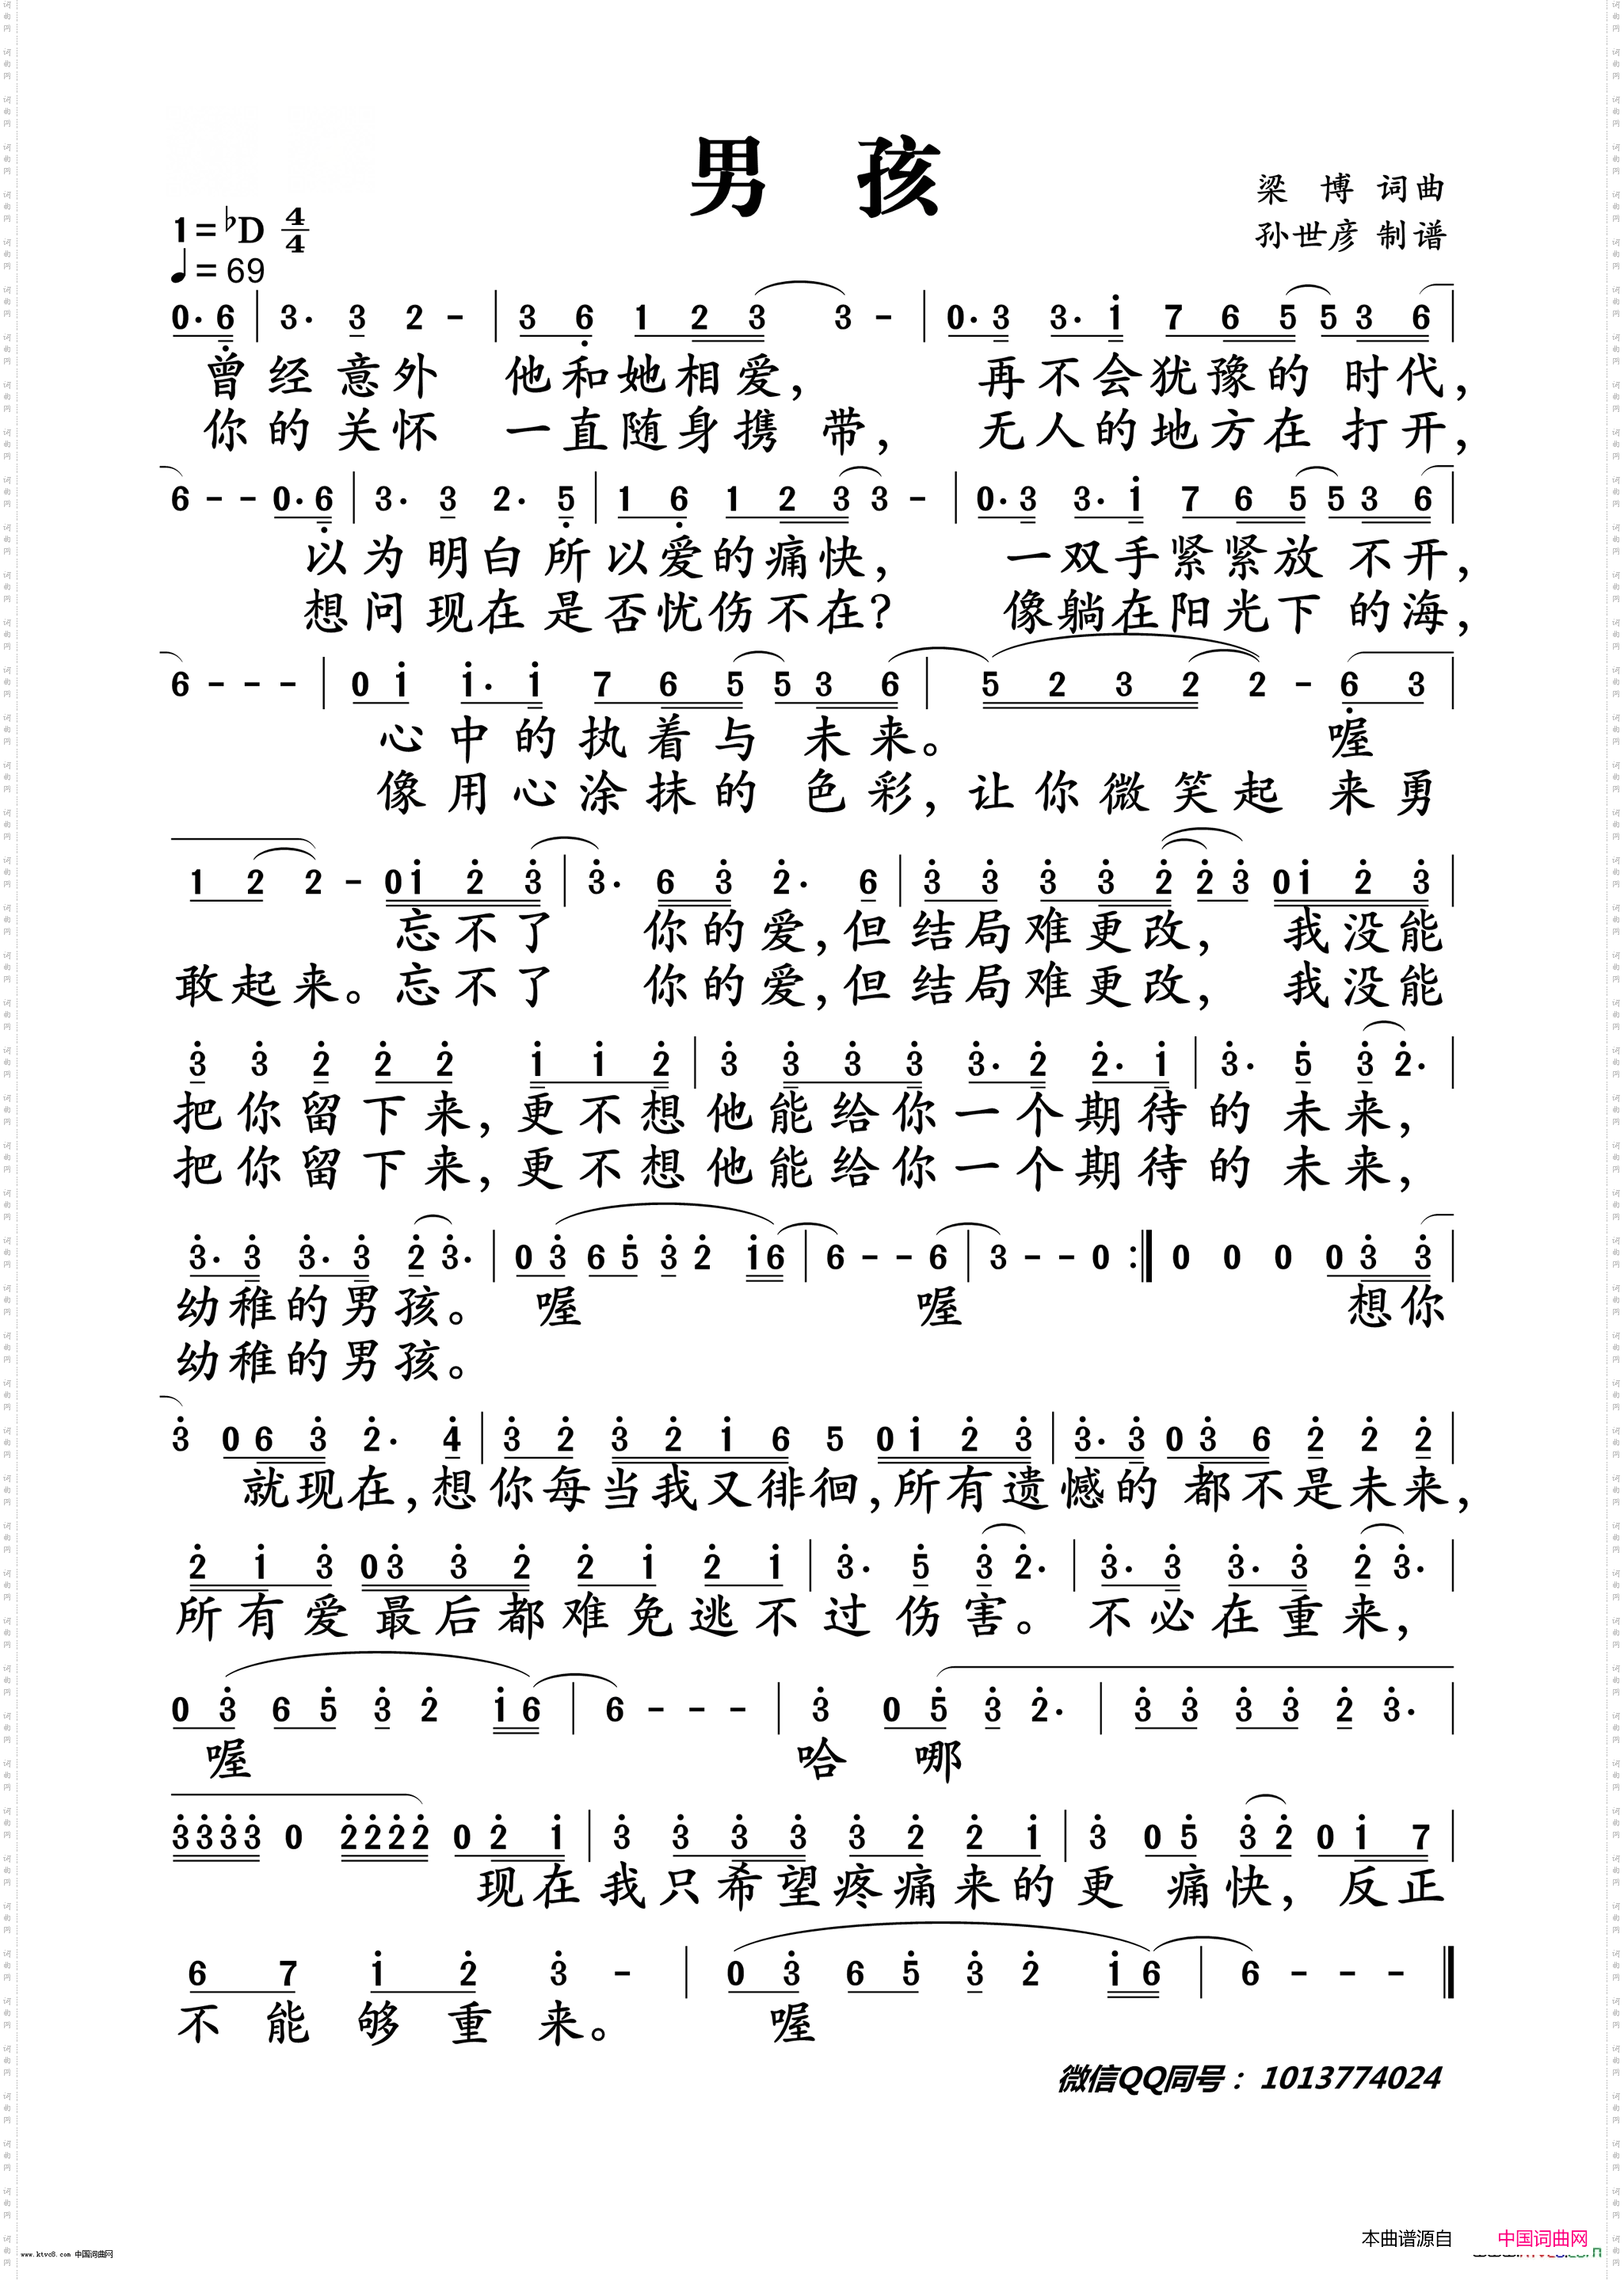 男 孩
梁 博 词曲
孙世彦 制谱
1=♭D 4/4
♩=69
0· 6 | 3· 3 2 - | 3 6 1 2 3 3 - | 0· 3 3· i 7 6 5 5 3 6 |
曾经意外 他和她相爱, 再不会犹豫的时代,
你的关怀 一直随身携带, 无人的地方在打开,
6 - - 0· 6 | 3· 3 2· 5 | 1 6 1 2 3 3 - | 0· 3 3· i 7 6 5 5 3 6 |
以为明白所以爱的痛快, 一双手紧紧放不开,
想问现在是否忧伤不在? 像躺在阳光下的海,
6 - - - | 0 i i· i 7 6 5 5 3 6 | 5 2 3 2 2 - 6 3 |
心中的执着与未来。 喔
像用心涂抹的色彩, 让你微笑起来勇
1 2 2 - 0 i 2 3 | 3· 6 3 2· 6 | 3 3 3 3 2 2 3 0 i 2 3 |
忘不了 你的爱, 但结局难更改, 我没能
敢起来。忘不了 你的爱, 但结局难更改, 我没能
3 3 2 2 2 i i 2 | 3 3 3 3 3· 2 2· i | 3· 5 3 2· |
把你留下来, 更不想他能给你一个期待的未来,
把你留下来, 更不想他能给你一个期待的未来,
3· 3 3· 3 2 3· | 0 3 6 5 3 2 i 6 | 6 - - 6 | 3 - - 0 :| 0 0 0 0 3 3 |
幼稚的男孩。 喔 喔 想你
幼稚的男孩。
3 0 6 3 2· 4 | 3 2 3 2 i 6 5 0 i 2 3 | 3· 3 0 3 6 2 2 2 |
就现在, 想你每当我又徘徊, 所有遗憾的都不是未来,
2 i 3 0 3 3 2 2 i 2 i | 3· 5 3 2· | 3· 3 3· 3 2 3· |
所有爱最后都难免逃不过伤害。 不必在重来,
0 3 6 5 3 2 i 6 | 6 - - - | 3 0 5 3 2· | 3 3 3 3 2 3· |
喔 哈 哪
3 3 3 3 0 2 2 2 2 0 2 i | 3 3 3 3 3 2 2 i | 3 0 5 3 2 0 i 7 |
现在我只希望疼痛来的更痛快, 反正
6 7 i 2 3 - | 0 3 6 5 3 2 i 6 | 6 - - - |
不能够重来。 喔
微信QQ同号：1013774024
本曲谱源自 中国词曲网
www.ktvc8.com 中国词曲网